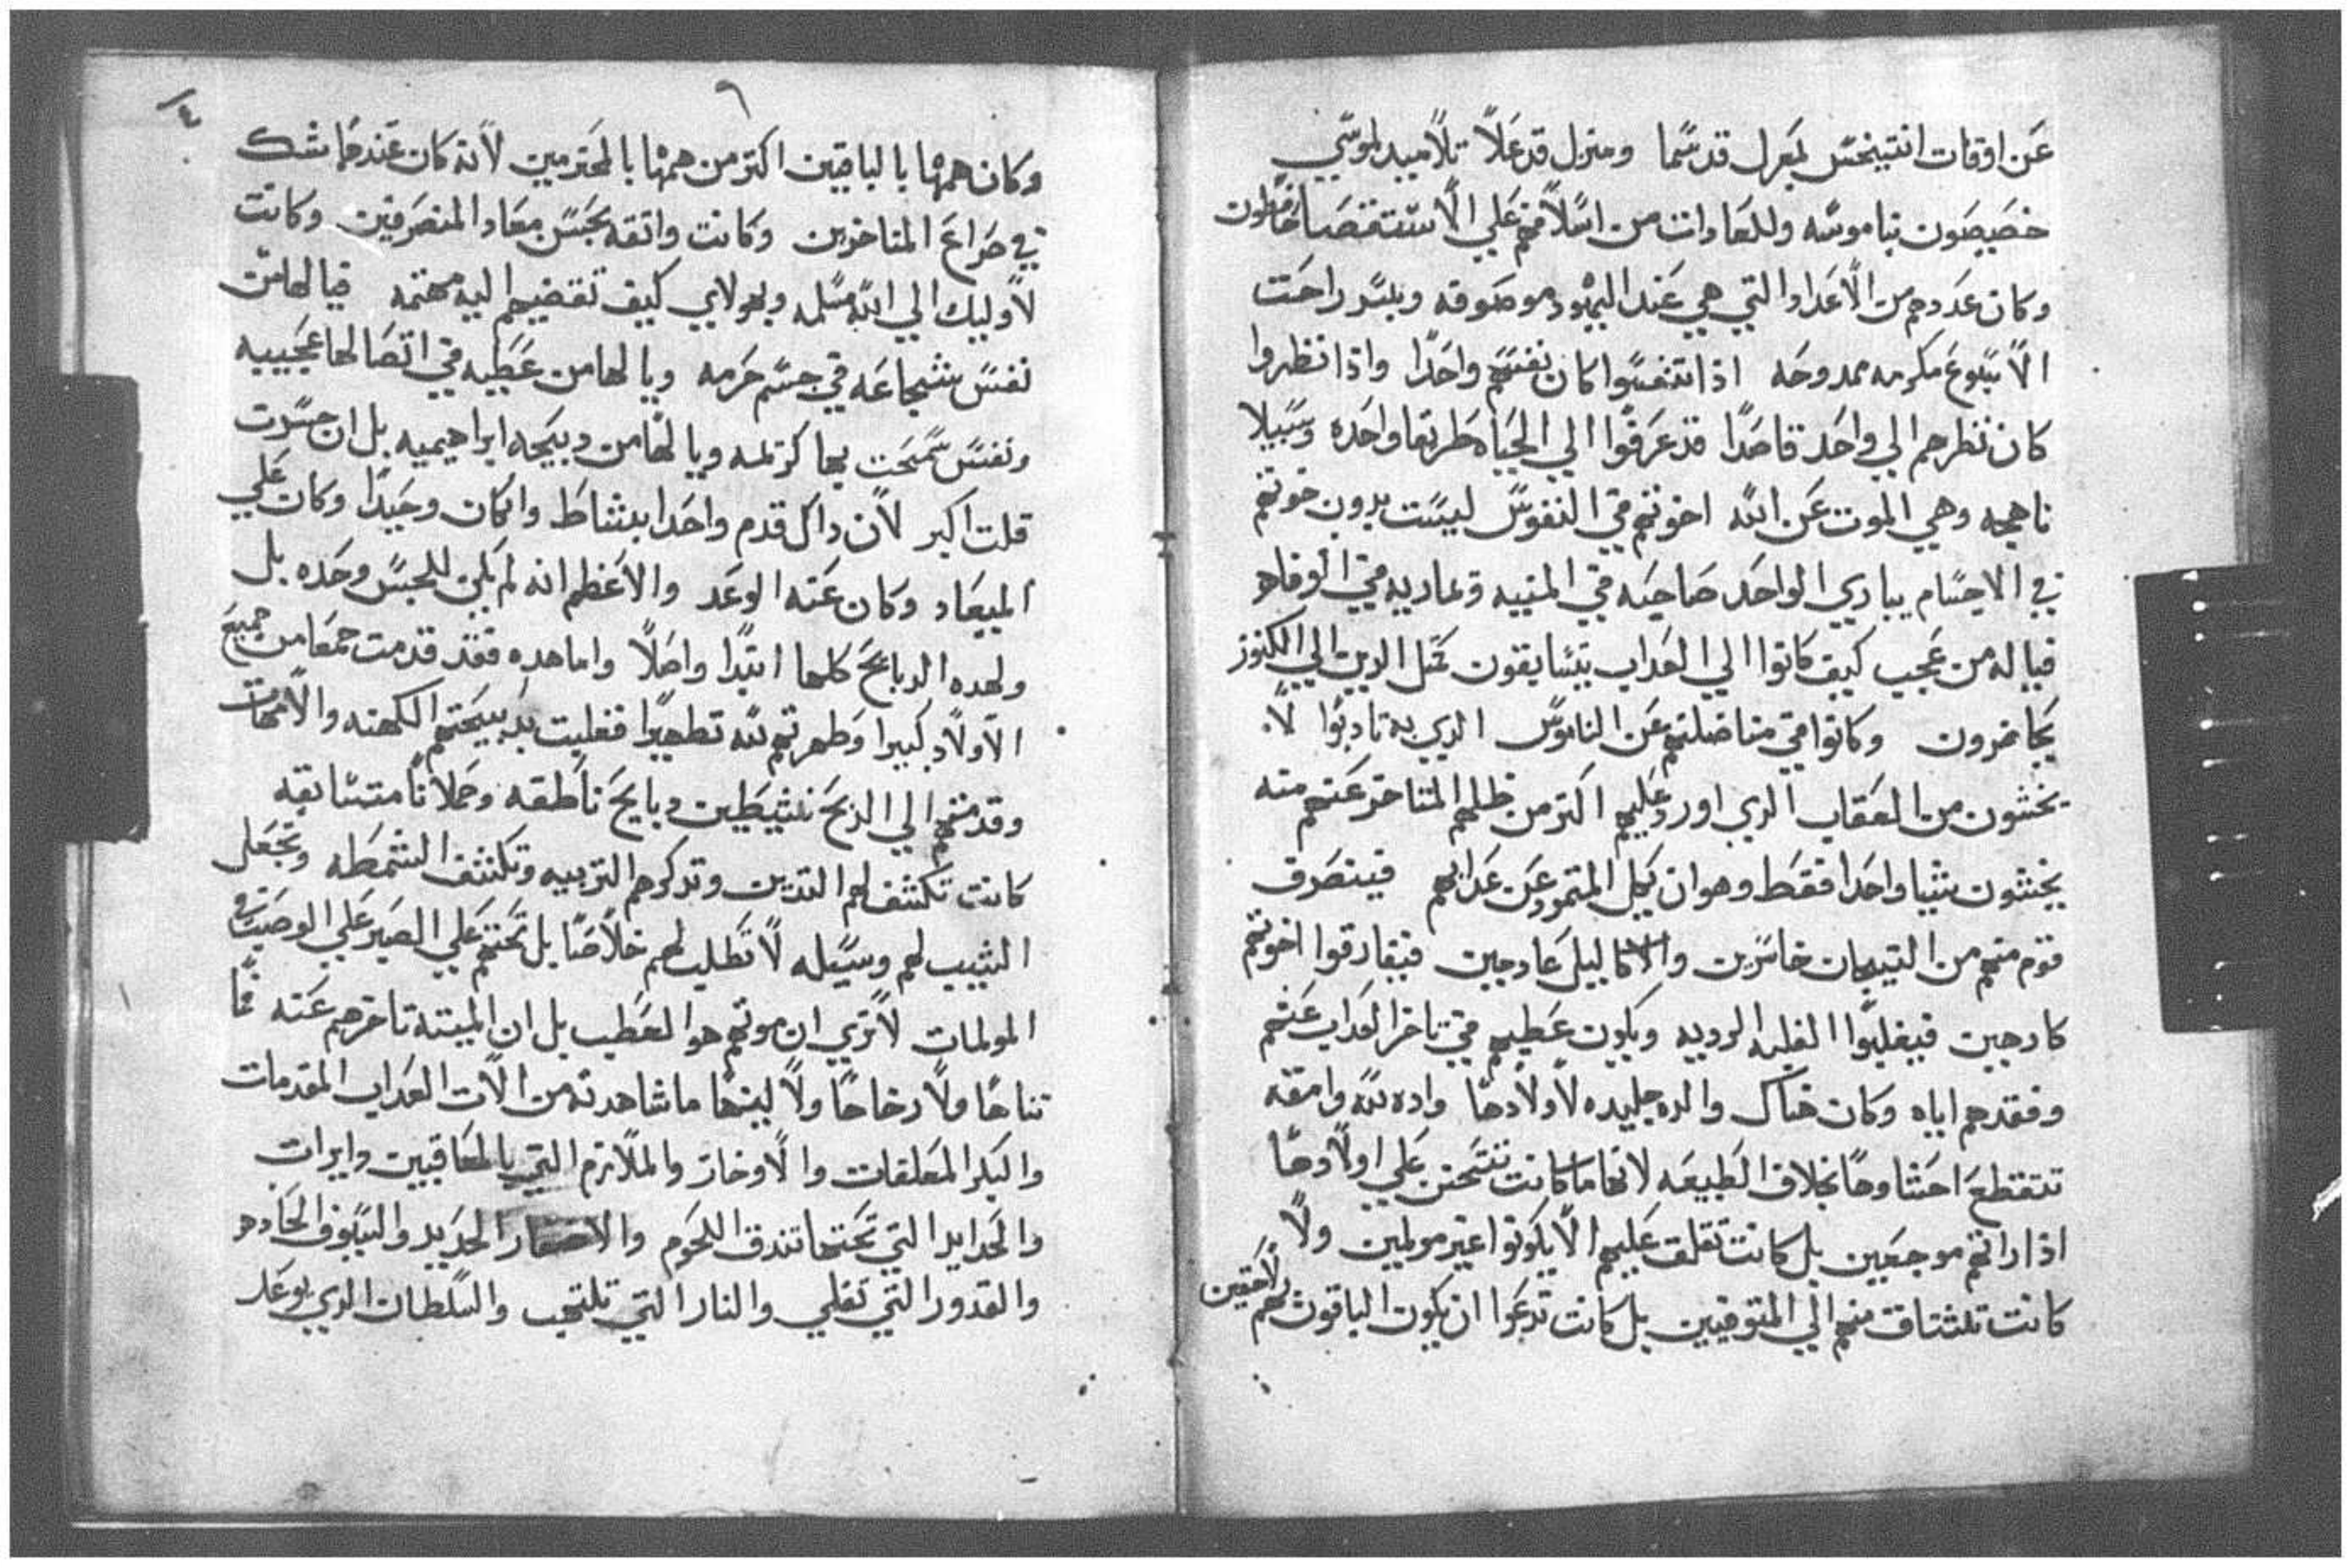 عن اوقات انتيخس لمعزل قد سما ومنزل قد علا تلاميد لموسي
خصيصون بناموسه وللعادات من اسلافهم علي الاستقصا حافطون
وكان عددهم من الاعداد التي هي عند اليهود موصوفه وبسر راحت
الاسبوع مكرمه ممدوحه اذا تنفسوا كان نفسهم واحدا واذا نظروا
كان نظرهم الي واحد قاصدا قد عرفوا الي الحياه طريقا واحده وسبيلا
ناهجه وهي الموت عن الله اخوتهم في النفوس ليست بدون خوتهم
في الاجسام يباري الواحد صاحبه في المنيه ويماريه في الوفاه
فياله من عجب كيف كانوا الي العداب يتسابقون كمتل الدين الي الكنوز
يحاضرون وكانوا في مناضلتهم عن الناموس الدي به تادبوا لا
يخشون من العقاب الدي اورد عليهم اكتر من طلبهم المتاخر عنهم منه
يخشون شيا واحدا فقط وهو ان يكل المتمرد عن عدابهم فينصرف
قوم منهم من التيجان خاسرين والاكاليل عادمين فيفارقوا اخوتهم
كارهين فيغلبوا الغلبه الرديه ويكون عطبهم في تاخر العداب عنهم
وفقدهم اياه وكان هناك والده جليده لاولادها واده لله وامقه
تتقطع احشاوها بخلاف الطبيعه لانها ما كانت تتحنن علي اولادها
اذا راتهم موجعين بل كانت تقلق عليهم الا يكونوا غير مولمين ولا
كانت تشتاق منهم الي المتوفيين بل كانت تدعوا ان يكون الباقون بهم لاحقين
٦
٤
وكان همها بالباقين اكتر من همها بالمخترمين لانه كان عندها شك
في صراع المتاخرين وكانت واتقه بحسن معاد المنصرفين وكانت
لاوليك الي الله مسلمه وبهولاي كيف تقضيهم اليه مهتمه فيالها من
نفس شجاعه في جسم حرمه ويالها من عطيه في اتصالها عجيبه
ونفس سمحت بها كريمه ويالها من دبيحه ابراهيميه بل ان جسرت
قلت اكبر لان داك قدم واحدا بنشاط وان كان وحيدا وكان علي
الميعاد وكان عنه الوعد والاعظم انه لم يكن للجنس وحده بل
ولهده الدبايح كلها ابتدا واصلا واما هده فقد قدمت جمعا من جميع
الاولاد كبيرا وطهرتهم لله تطهيرا فغلبت بدبيحتهم الكهنه والامهات
وقدمتهم الي الدبح نشيطين دبايح ناطقه وحملانا متسابقه
كانت تكشف لهم التديين وتدكرهم التربيه وتكشف الشمطه وتجعل
الشيب لهم وسيله لا تطلب لهم خلاصا بل تحتهم علي الصبر علي الوصيت في
المولمات لا تري ان موتهم هو العطب بل ان الميته تاخرهم عنه فما
تناها ولا رخاها ولا لينها ما شاهدته من الات العداب المقدمات
والبكر المعلقات والاوخاز والملازم التي بالمعاقبين وابرات
والحدايد التي تحتها تندق اللحوم والاضفار الحديد والسيوف الحاده
والقدور التي تغلي والنار التي تلتهب والسلطان الدي يوعد